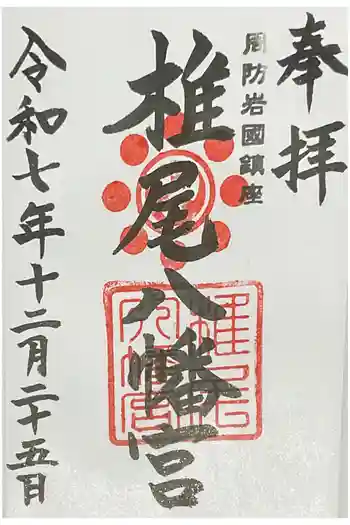 奉拝
周防岩國鎮座
椎尾八幡宮
令和七年十二月二十五日
椎尾
八幡宮